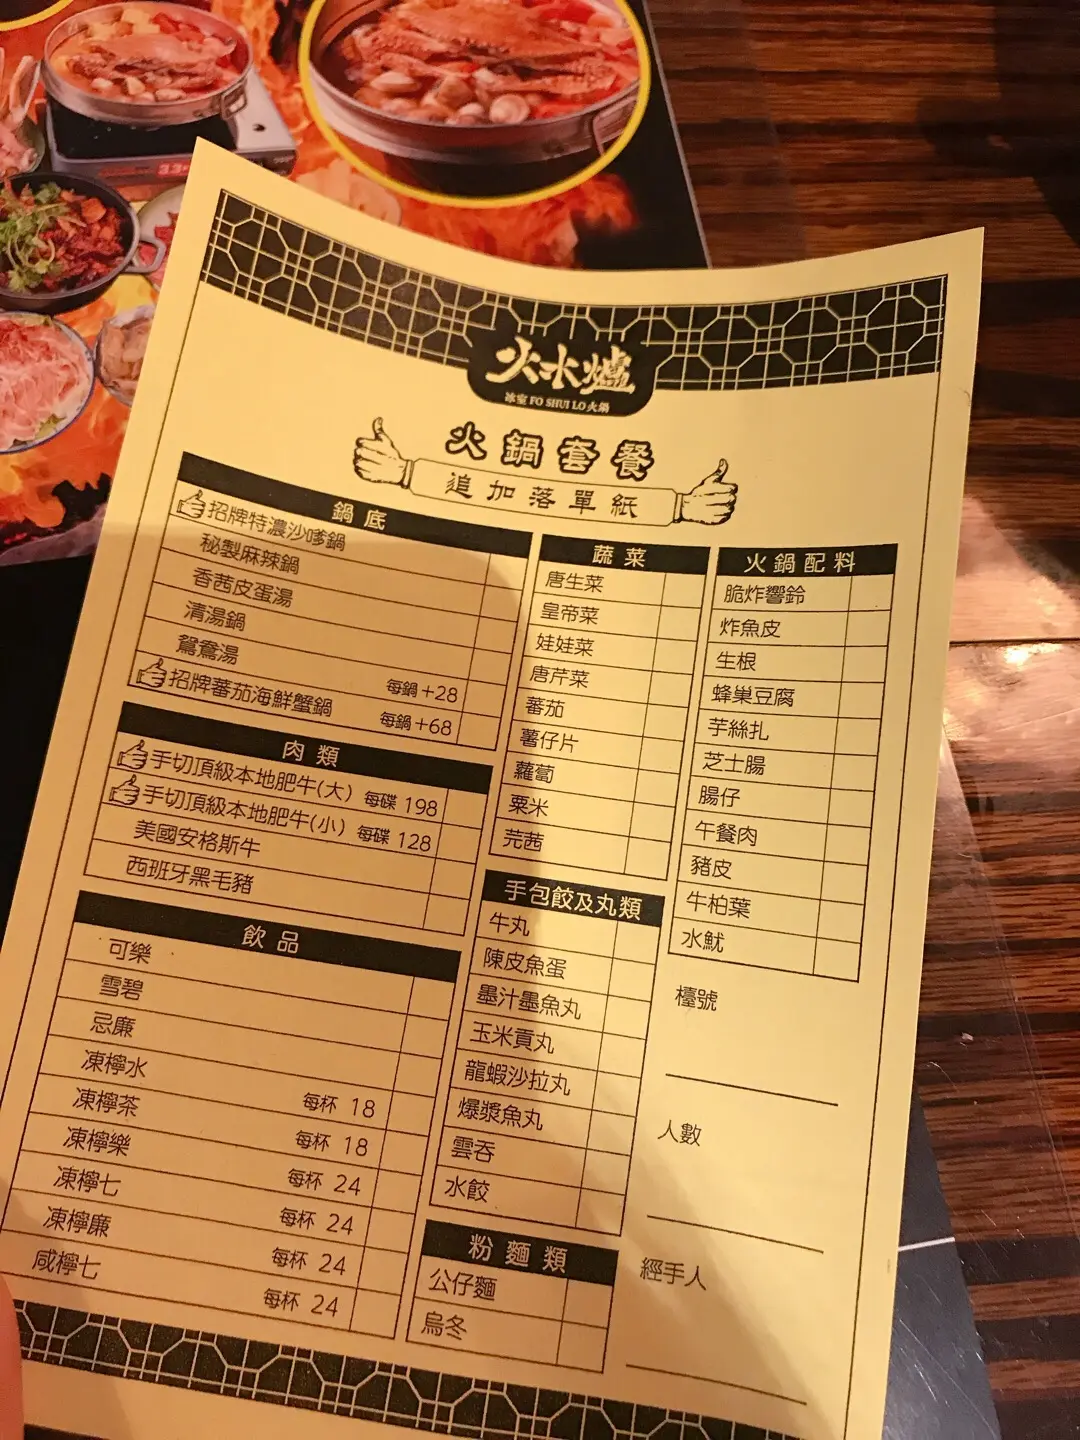 火水爐
冰室 FO SHUI LO 火鍋
火鍋套餐
追加落單紙
鍋底
招牌特濃沙嗲鍋
秘製麻辣鍋
香茜皮蛋湯
清湯鍋
鴛鴦湯 每鍋+28
招牌蕃茄海鮮蟹鍋 每鍋+68
肉類
手切頂級本地肥牛(大) 每碟 198
手切頂級本地肥牛(小) 每碟 128
美國安格斯牛
西班牙黑毛豬
飲品
可樂
雪碧
忌廉
凍檸水 每杯 18
凍檸茶 每杯 18
凍檸樂 每杯 24
凍檸七 每杯 24
凍檸廉 每杯 24
咸檸七 每杯 24
蔬菜
唐生菜
皇帝菜
娃娃菜
唐芹菜
蕃茄
薯仔片
蘿蔔
粟米
芫茜
手包餃及丸類
牛丸
陳皮魚蛋
墨汁墨魚丸
玉米貢丸
龍蝦沙拉丸
爆漿魚丸
雲吞
水餃
粉麵類
公仔麵
烏冬
火鍋配料
脆炸響鈴
炸魚皮
生根
蜂巢豆腐
芋絲扎
芝士腸
腸仔
午餐肉
豬皮
牛柏葉
水魷
檯號
人數
經手人